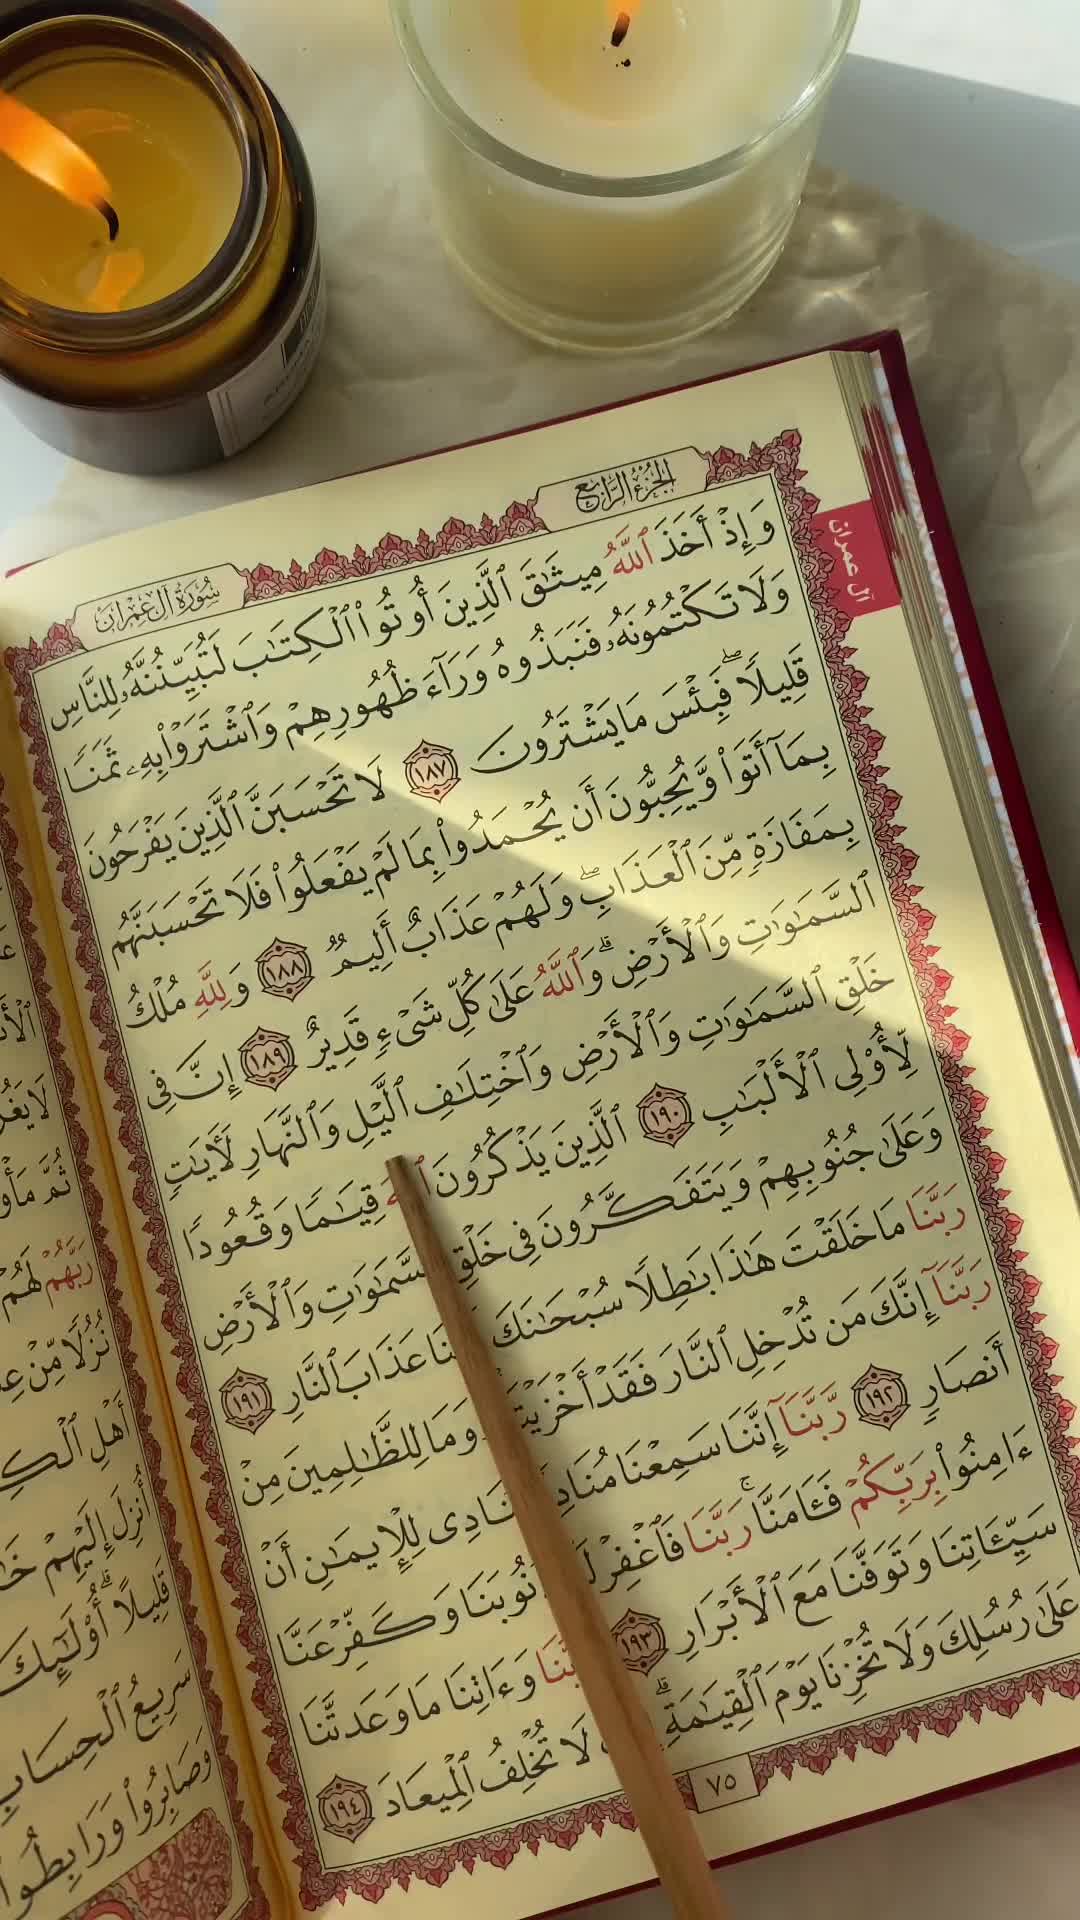 الجزء الرابع
سورة آل عمران
آل عمران
وَإِذْ أَخَذَ ٱللَّهُ مِيثَٰقَ ٱلَّذِينَ أُوتُوا۟ ٱلْكِتَٰبَ لَتُبَيِّنُنَّهُۥ لِلنَّاسِ
وَلَا تَكْتُمُونَهُۥ فَنَبَذُوهُ وَرَآءَ ظُهُورِهِمْ وَٱشْتَرَوْا۟ بِهِۦ ثَمَنًا
قَلِيلًا ۖ فَبِئْسَ مَا يَشْتَرُونَ ١٨٧ لَا تَحْسَبَنَّ ٱلَّذِينَ يَفْرَحُونَ
بِمَآ أَتَوا۟ وَّيُحِبُّونَ أَن يُحْمَدُوا۟ بِمَا لَمْ يَفْعَلُوا۟ فَلَا تَحْسَبَنَّهُم
بِمَفَازَةٍ مِّنَ ٱلْعَذَابِ ۖ وَلَهُمْ عَذَابٌ أَلِيمٌ ١٨٨ وَلِلَّهِ مُلْكُ
ٱلسَّمَٰوَٰتِ وَٱلْأَرْضِ ۗ وَٱللَّهُ عَلَىٰ كُلِّ شَىْءٍ قَدِيرٌ ١٨٩ إِنَّ فِى
خَلْقِ ٱلسَّمَٰوَٰتِ وَٱلْأَرْضِ وَٱخْتِلَٰفِ ٱلَّيْلِ وَٱلنَّهَارِ لَءَايَٰتٍ
لِّأُو۟لِى ٱلْأَلْبَٰبِ ١٩٠ ٱلَّذِينَ يَذْكُرُونَ قِيَٰمًا وَقُعُودًا
وَعَلَىٰ جُنُوبِهِمْ وَيَتَفَكَّرُونَ فِى خَلْقِ ٱلسَّمَٰوَٰتِ وَٱلْأَرْضِ
رَبَّنَا مَا خَلَقْتَ هَٰذَا بَٰطِلًا سُبْحَٰنَكَ عَذَابَ ٱلنَّارِ ١٩١
رَبَّنَآ إِنَّكَ مَن تُدْخِلِ ٱلنَّارَ فَقَدْ أَخْزَيْتَهُۥ وَمَا لِلظَّٰلِمِينَ مِنْ
أَنصَارٍ ١٩٢ رَّبَّنَآ إِنَّنَا سَمِعْنَا مُنَادِيًا يُنَادِى لِلْإِيمَٰنِ أَنْ
ءَامِنُوا۟ بِرَبِّكُمْ فَـَٔامَنَّا ۚ رَبَّنَا فَٱغْفِرْ لَنَا ذُنُوبَنَا وَكَفِّرْ عَنَّا
سَيِّـَٔاتِنَا وَتَوَفَّنَا مَعَ ٱلْأَبْرَارِ ١٩٣ رَبَّنَا وَءَاتِنَا مَا وَعَدتَّنَا
عَلَىٰ رُسُلِكَ وَلَا تُخْزِنَا يَوْمَ ٱلْقِيَٰمَةِ ۗ لَا تُخْلِفُ ٱلْمِيعَادَ ١٩٤
٧٥
ثُمَّ
رَبَّهُمْ لَهُمْ
نُزُلًا مِّنْ
أَهْلِ
أُنزِلَ إِلَيْهِمْ
قَلِيلًا ۗ أُو۟لَٰٓئِكَ
سَرِيعُ ٱلْحِسَابِ
وَصَابِرُوا۟ وَرَابِطُوا۟